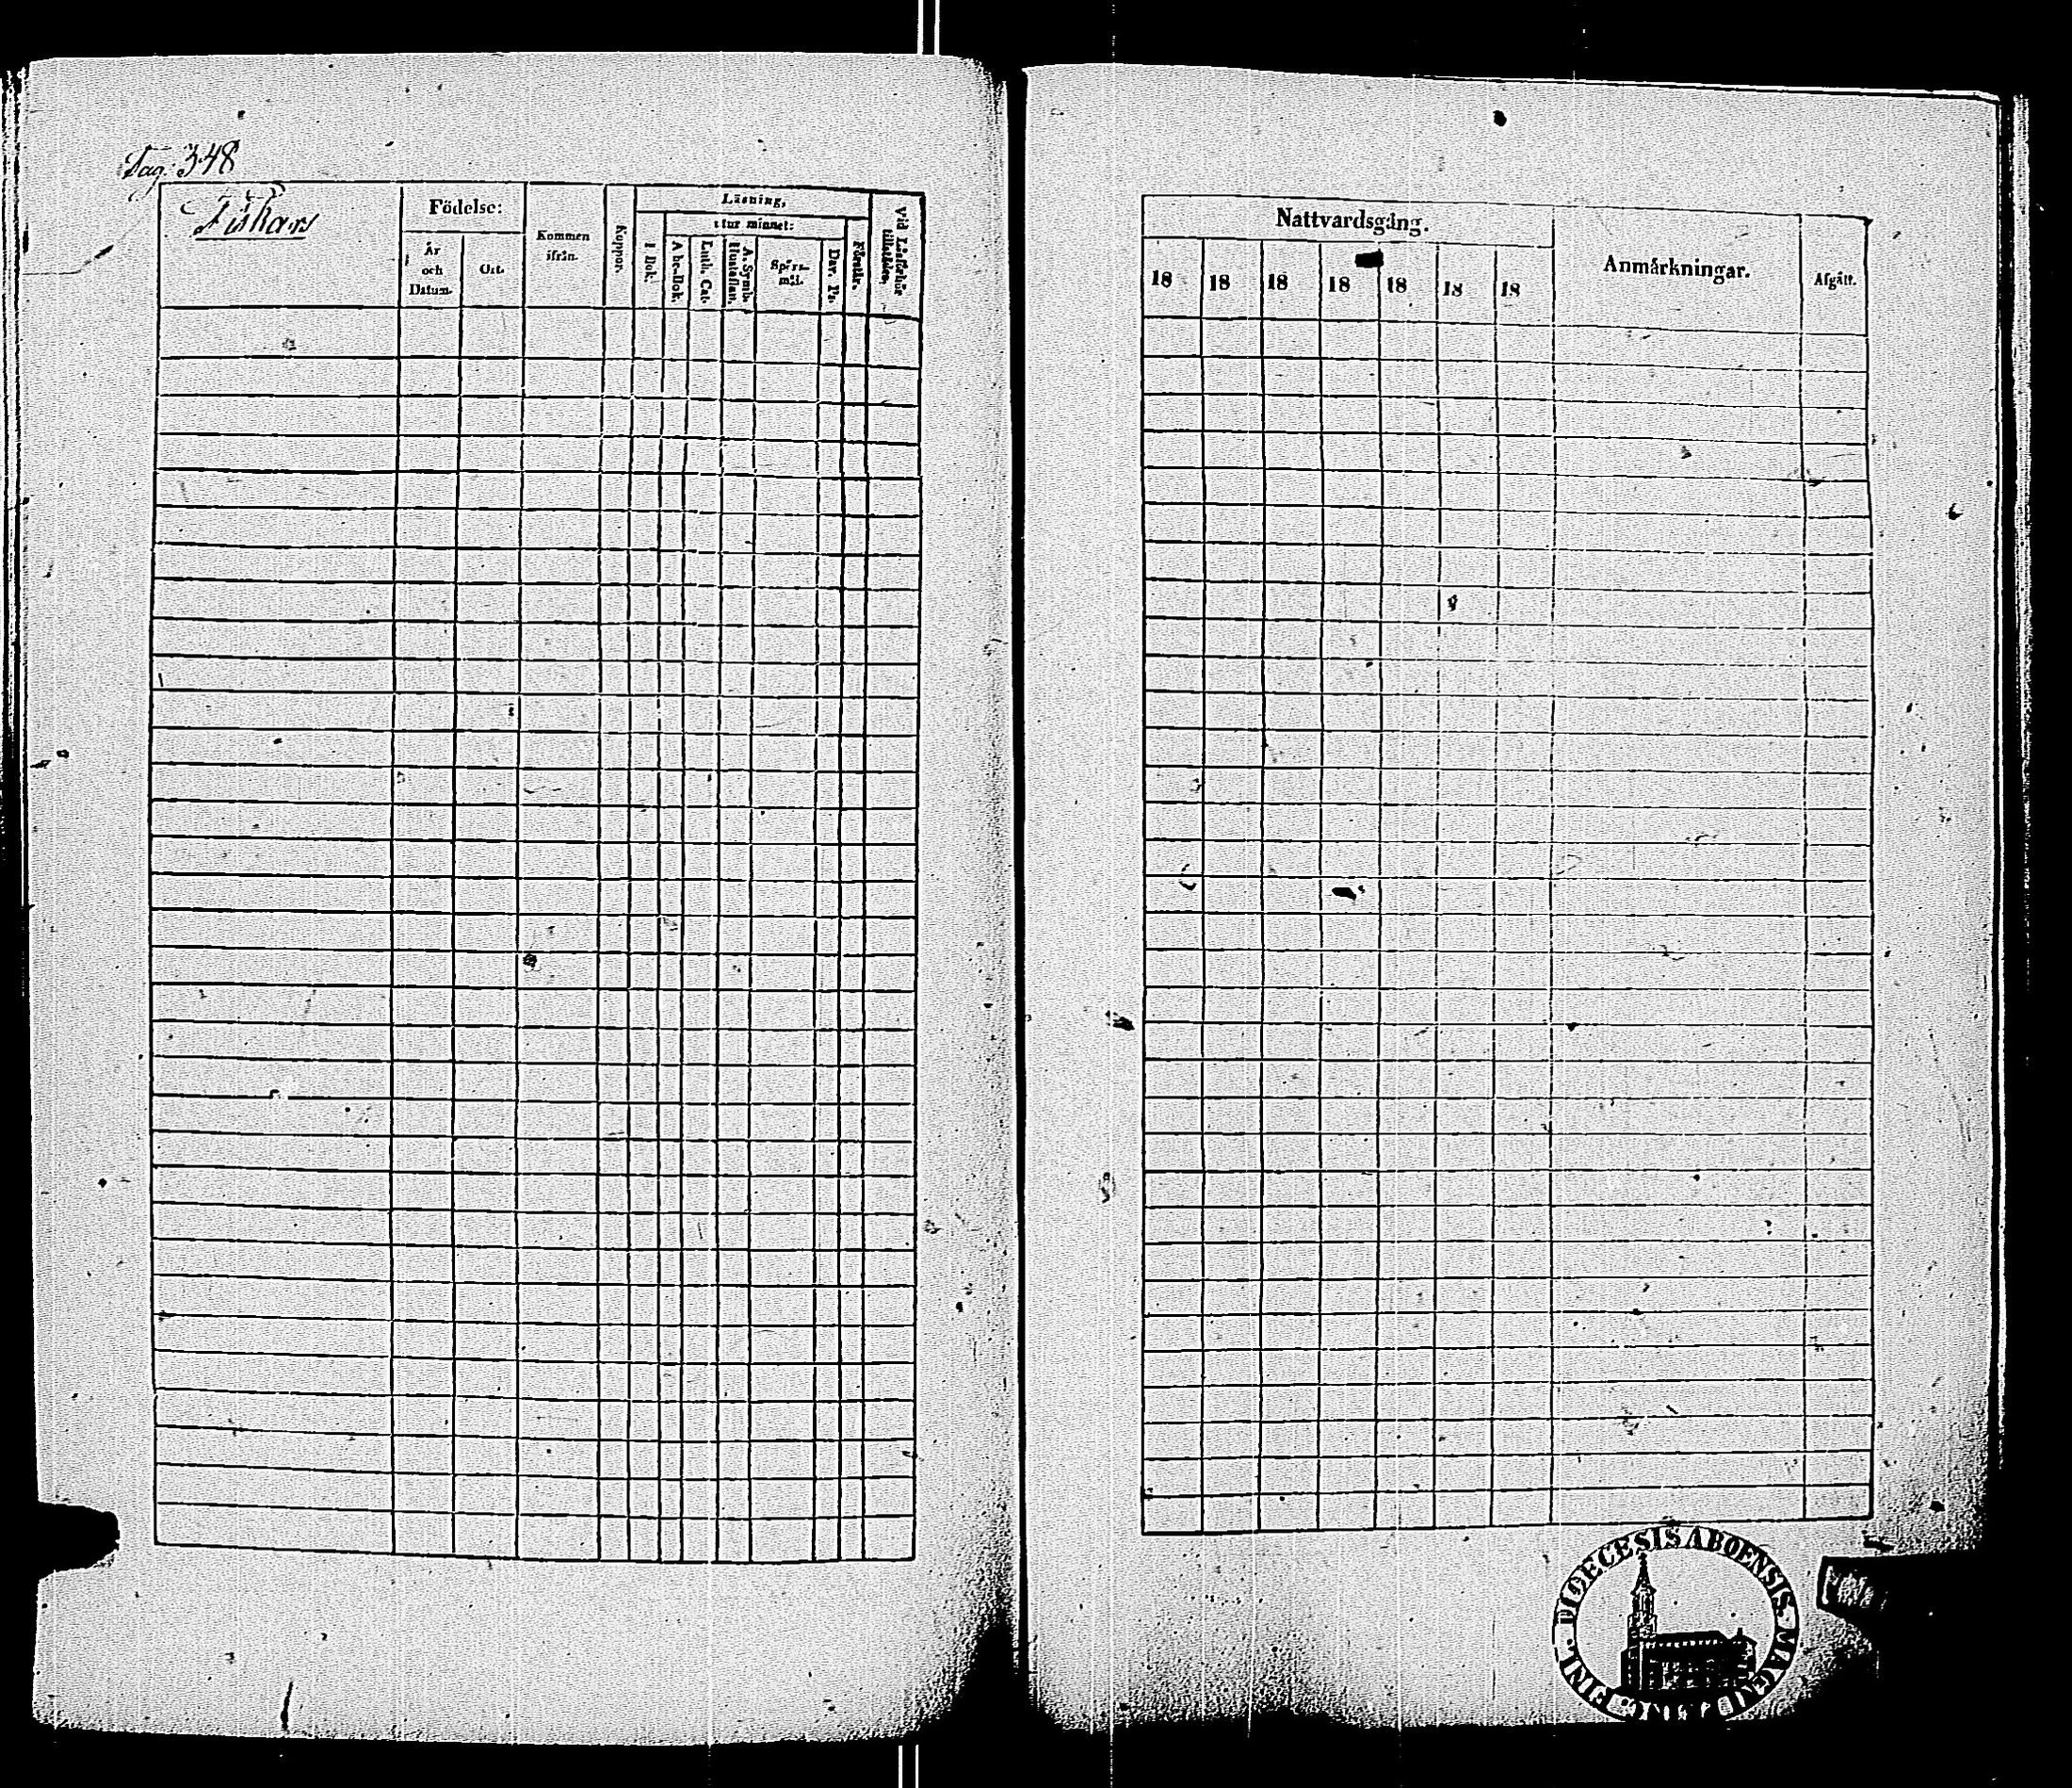 Pag. 348
Fiskars
Födelse:
År
och
Datum.
Ort.
Kommen
ifrån.
Koppor.
Läsning,
utur minnet:
I Bok.
Abc-Bok.
Luth. Cat.
A. Symb.
Hustaflan.
Spörs-
mål.
Dav. Ps.
Förstår.
Vid Läsförhör
tillstädes.
Nattvardsgång.
18 18 18 18 18 18 18
Anmärkningar.
Afgått.
FINL. DIOECESIS ABOENSIS. MAGNI DUC.